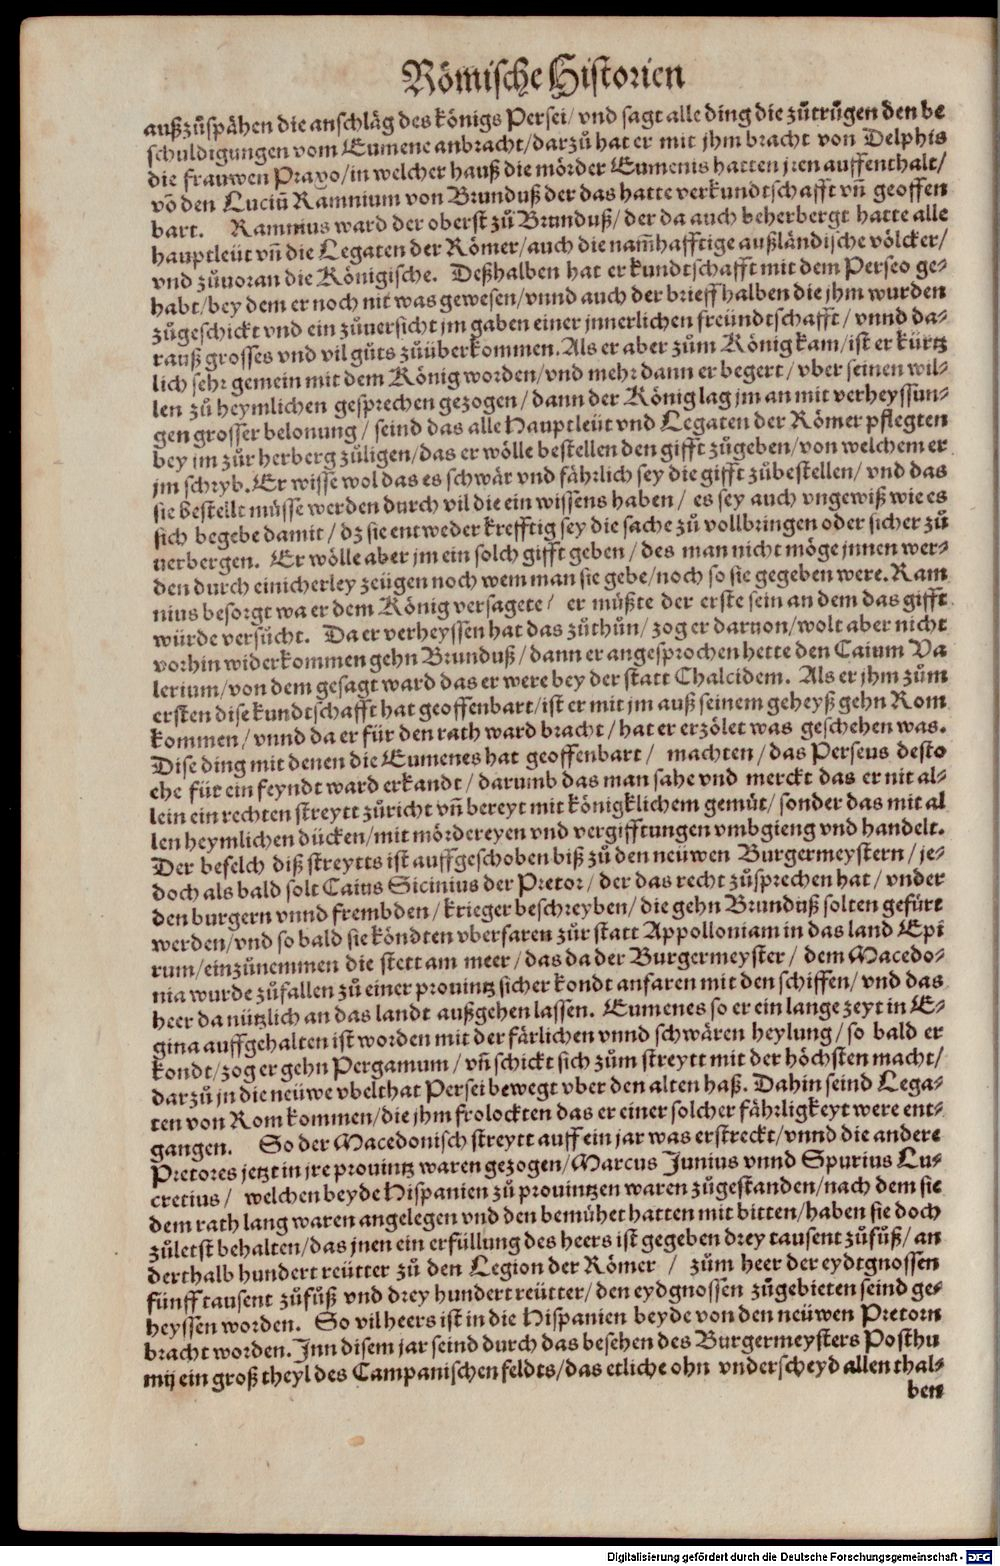 Römische Historien
außzůspähen die anschläg des königs Persei/ vnd sagt alle ding die zůtrůgen den be
schuldigungen vom Eumene anbracht/darzů hat er mit jhm bracht von Delphis
die frauwen Praxo/in welcher hauß die mörder Eumenis hatten jren auffenthalt/
võ den Luciũ Ramnium von Brunduß der das hatte verkundtschafft vñ geoffen
bart. Ramnius ward der oberst zů Brunduß/ der da auch beherbergt hatte alle
hauptleüt vñ die Legaten der Römer/auch die nam̃hafftige außländische völcker/
vnd zůuoran die Königische. Deßhalben hat er kundtschafft mit dem Perseo ge⸗
habt/bey dem er noch nit was gewesen/vnnd auch der brieff halben die jhm wurden
zůgeschickt vnd ein zůuersicht jm gaben einer jnnerlichen freündtschafft/ vnnd da⸗
rauß grosses vnd vil gůts zůüberkommen. Als er aber zům König kam/ist er kürtz
lich sehr gemein mit dem König worden/vnd mehr dann er begert/ vber seinen wil⸗
len zů heymlichen gesprechen gezogen/ dann der König lag jm an mit verheyssun⸗
gen grosser belonung/ seind das alle Hauptleüt vnd Legaten der Römer pflegten
bey jm zůr herberg zůligen/das er wölle bestellen den gifft zůgeben/von welchem er
jm schryb. Er wisse wol das es schwär vnd fährlich sey die gifft zůbestellen/ vnd das
sie bestellt müsse werden durch vil die ein wissens haben/ es sey auch vngewiß wie es
sich begebe damit/ dz sie entweder krefftig sey die sache zů vollbringen oder sicher zů
uerbergen. Er wölle aber jm ein solch gifft geben/ des man nicht möge jnnen wer⸗
den durch einicherley zeügen noch wem man sie gebe/noch so sie gegeben were. Ram
nius besorgt wa er dem König versagete/ er müßte der erste sein an dem das gifft
würde versůcht. Da er verheyssen hat das zůthůn/ zog er daruon/wolt aber nicht
vorhin widerkommen gehn Brunduß/ dann er angesprochen hette den Caium Va
lerium/von dem gesagt ward das er were bey der statt Chalcidem. Als er jhm zům
ersten dise kundtschafft hat geoffenbart/ist er mit jm auß seinem geheyß gehn Rom
kommen/ vnnd da er für den rath ward bracht/ hat er erzölet was geschehen was.
Dise ding mit denen die Eumenes hat geoffenbart/ machten/ das Perseus desto
ehe für ein feyndt ward erkandt/ darumb das man sahe vnd merckt das er nit al⸗
lein ein rechten streytt zůricht vñ bereyt mit königklichem gemüt/ sonder das mit al
len heymlichen dücken/mit mördereyen vnd vergifftungen vmbgieng vnd handelt.
Der befelch diß streytts ist auffgeschoben biß zů den neüwen Burgermeystern/ je⸗
doch als bald solt Caius Sicinius der Pretor/ der das recht zůsprechen hat/ vnder
den burgern vnnd frembden/ krieger beschreyben/ die gehn Brunduß solten gefürt
werden/vnd so bald sie köndten vberfaren zůr statt Appolloniam in das land Epi
rum/einzůnemmen die stett am meer/ das da der Burgermeyster/ dem Macedo⸗
nia wurde zůfallen zů einer prouintz sicher kondt anfaren mit den schiffen/ vnd das
heer da nützlich an das landt außgehen lassen. Eumenes so er ein lange zeyt in E⸗
gina auffgehalten ist worden mit der färlichen vnnd schwären heylung/ so bald er
kondt/zog er gehn Pergamum/ vñ schickt sich zům streytt mit der höchsten macht/
darzů jn die neüwe vbelthat Persei bewegt vber den alten haß. Dahin seind Lega⸗
ten von Rom kommen/die jhm frolockten das er einer solcher fährligkeyt were ent⸗
gangen. So der Macedonisch streytt auff ein jar was erstreckt/vnnd die andere
Pretores jetzt in jre prouintz waren gezogen/Marcus Junius vnnd Spurius Lu⸗
cretius/ welchen beyde Hispanien zů prouintzen waren zůgestanden/nach dem sie
dem rath lang waren angelegen vnd den bemühet hatten mit bitten/haben sie doch
zůletst behalten/das jnen ein erfüllung des heers ist gegeben drey tausent zůfůß/ an
derthalb hundert reütter zů den Legion der Römer/ zům heer der eydtgnossen
fünff tausent zůfůß vnd drey hundert reütter/ den eydgnossen zůgebieten seind ge⸗
heyssen worden. So vil heers ist in die Hispanien beyde von den neüwen Pretorn
bracht worden. Inn disem jar seind durch das besehen des Burgermeysters Posthu
mij ein groß theyl des Campanischen feldts/das etliche ohn vnderscheyd allen thal⸗
ben
Digitalisierung gefördert durch die Deutsche Forschungsgemeinschaft - DFG